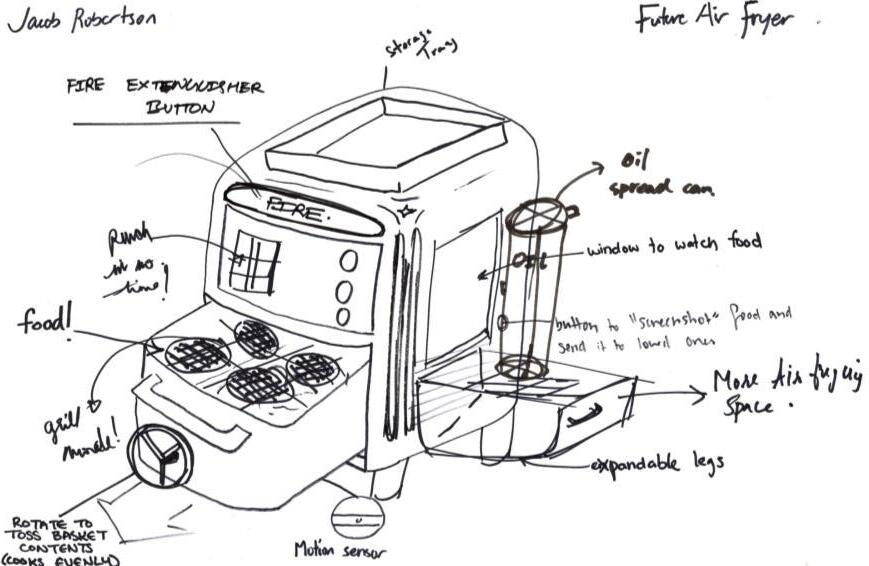 Jacob Robertson
Future Air Fryer.
Storage
Tray
FIRE EXTENGUISHER
BUTTON
oil
spread can
FIRE.
Punch
in no
time!
window to watch food
OIL
food!
button to "screenshot" food and
send it to loved ones
More Air frying
Space.
grill
mode!
expandable legs
ROTATE TO
TOSS BASKET
CONTENTS
(COOKS EVENLY)
Motion sensor